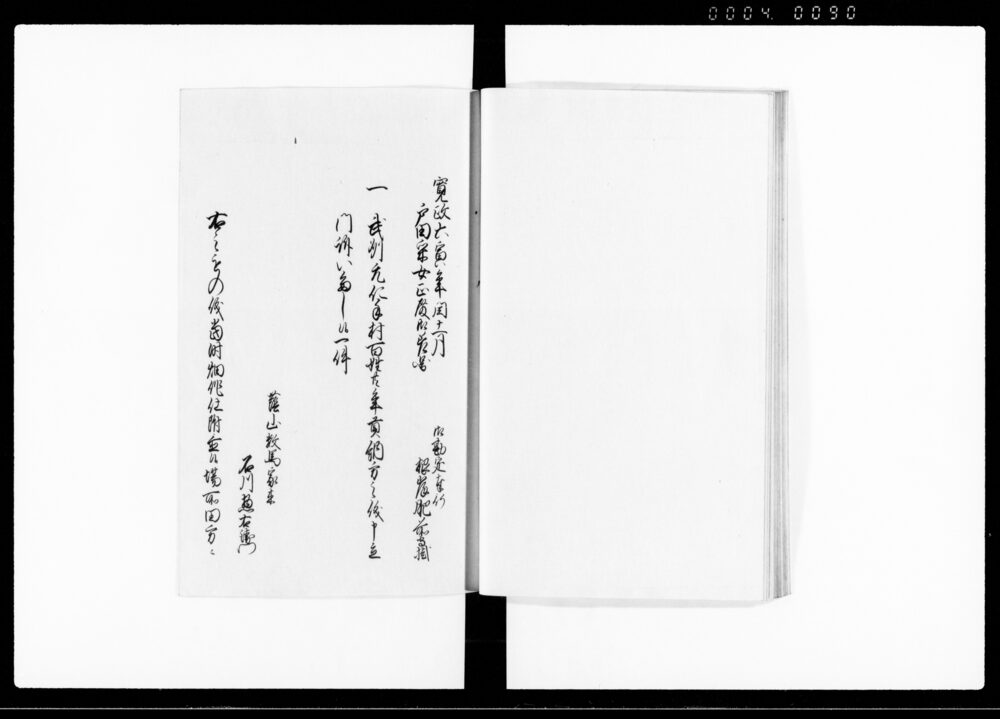 0004. 0090
寛政六寅年閏十一月
戸田采女正殿御差図
御勘定奉行
根岸肥前守掛
一 武州元仁手村百姓共年貢納方之儀申立
門訴いたし候一件
蔭山数馬家来
石川惣右衛門
右之もの儀当時畑作仕附有候場所田方ニ